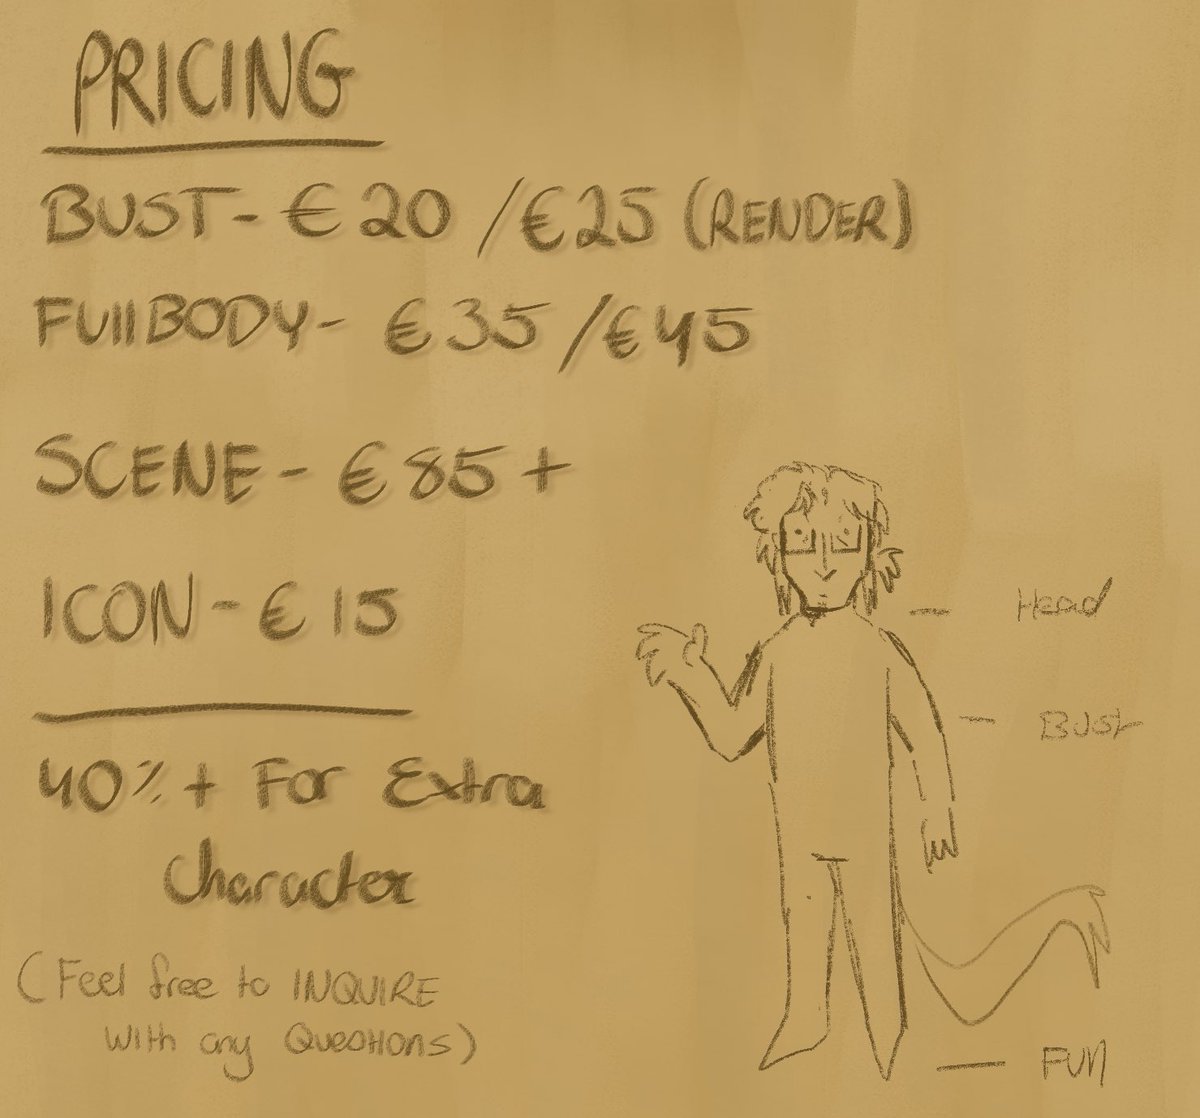 PRICING
BUST - € 20 / € 25 (RENDER)
FUllBODY - € 35 / € 45
SCENE - € 85 +
ICON - € 15
40% + For Extra
Character
(Feel free to INQUIRE
with any Questions)
Head
Bust
Full